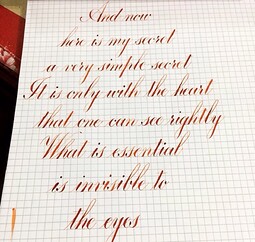 And now
here is my secret
a very simple secret
It is only with the heart
that one can see rightly
What is essential
is invisible to
the eyes